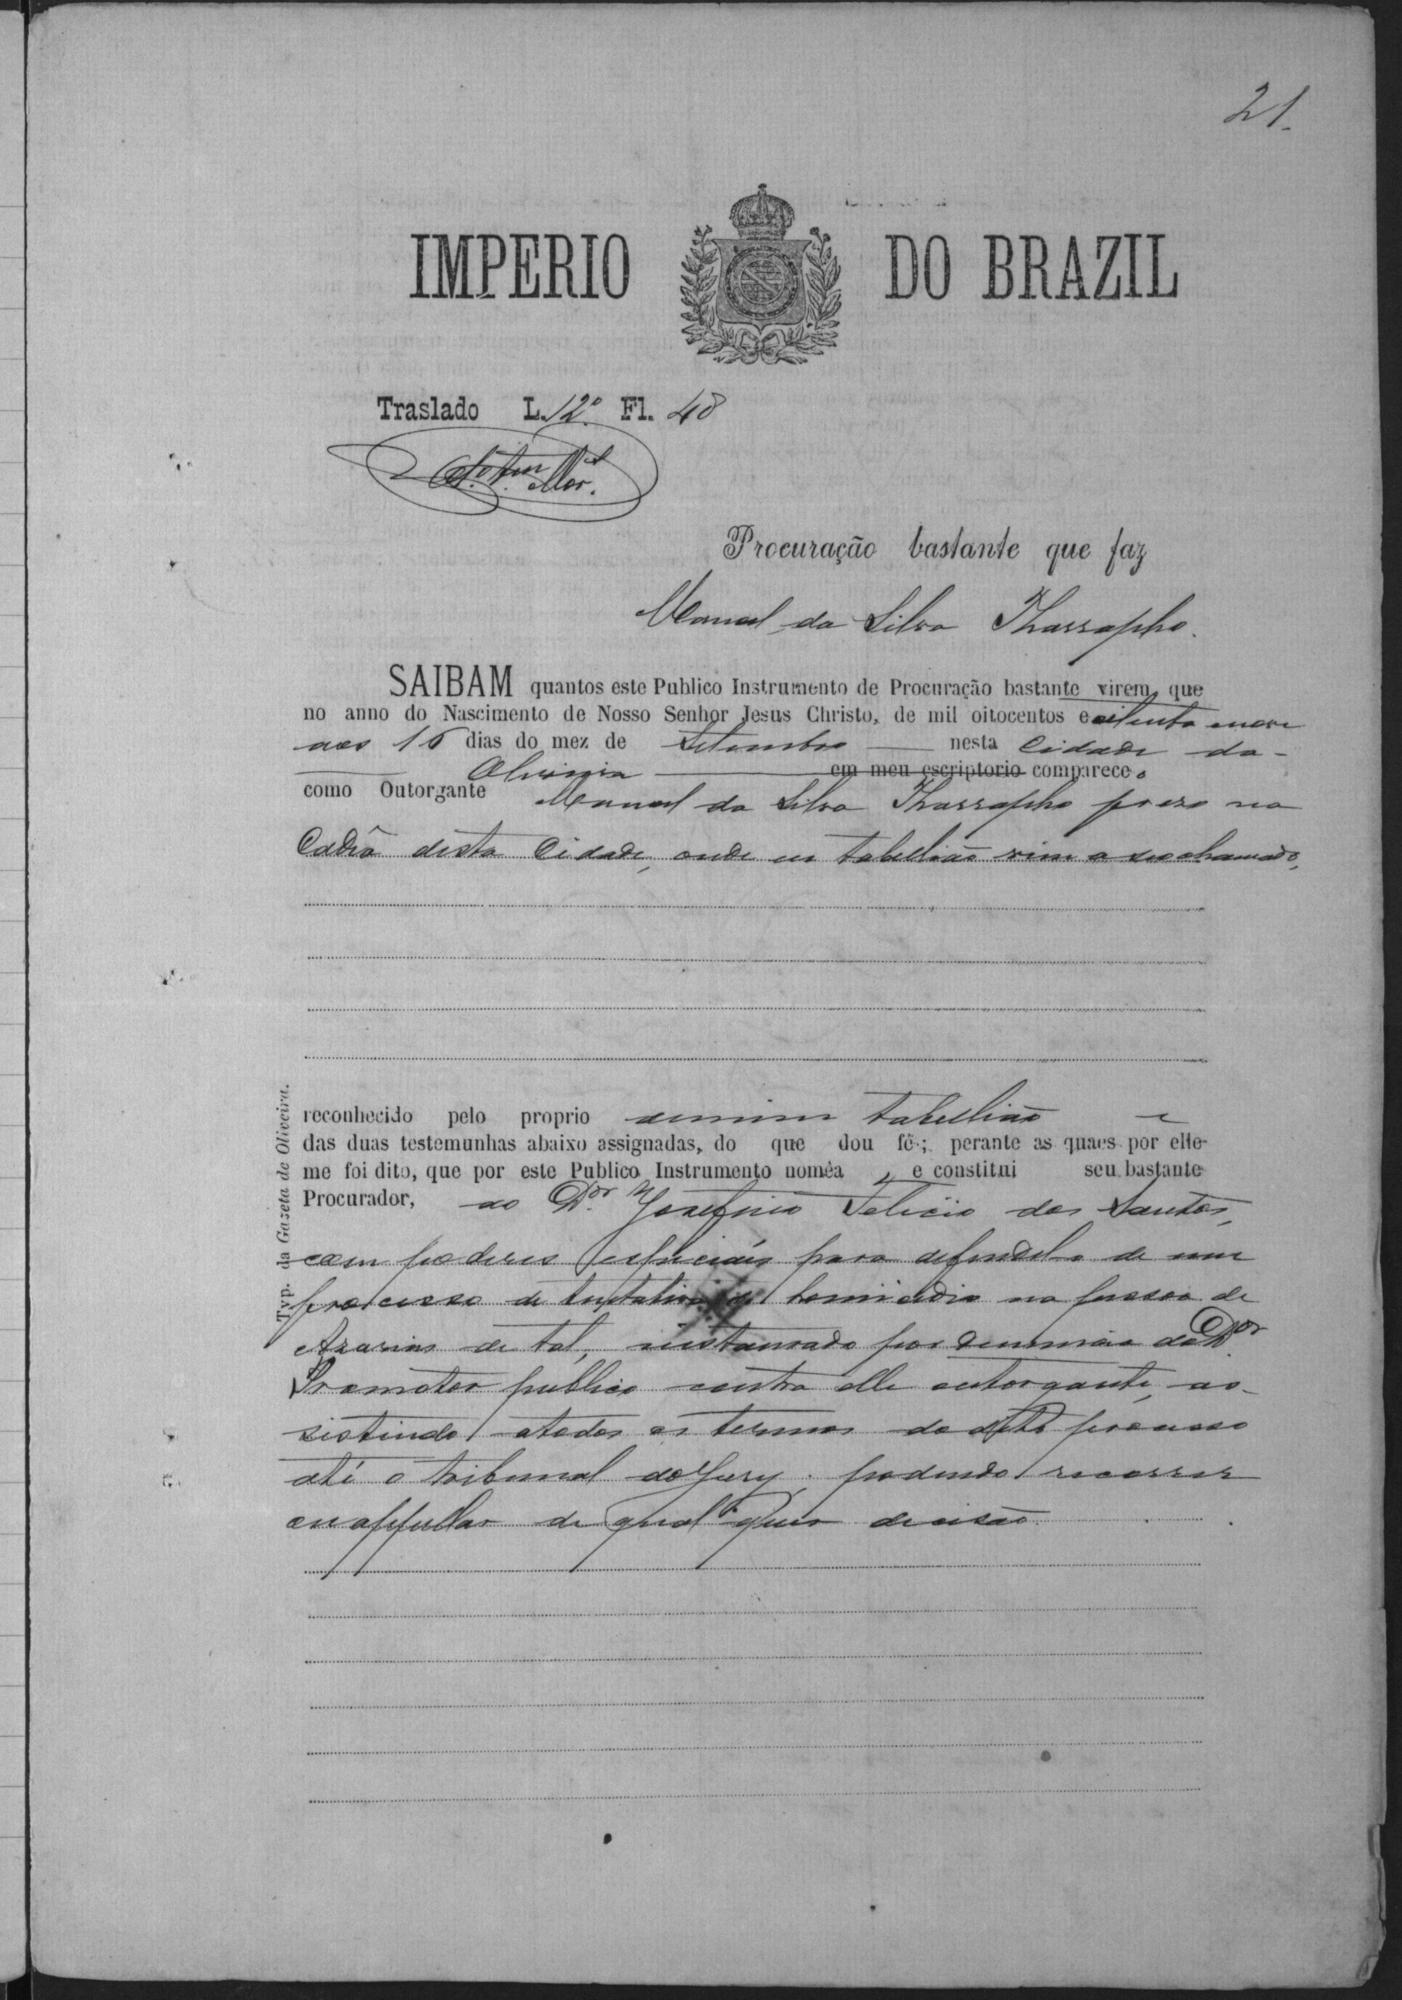 21.
IMPERIO DO BRAZIL
Traslado L. 12º Fl. 48
Procuração bastante que faz
Manoel da Silva Tharrapho.
SAIBAM quantos este Publico Instrumento de Procuração bastante virem, que
no anno do Nascimento de Nosso Senhor Jesus Christo, de mil oitocentos e oitenta e nove
aos 16 dias do mez de Setembro nesta Cidade da
Oliveira em meu escriptorio comparece o
como Outorgante Manoel da Silva Tharrapho prezo na
Cadêa desta Cidade, onde eu tabellião vim a seo chamado,
reconhecido pelo proprio de mim tabellião e
das duas testemunhas abaixo assignadas, do que dou fé; perante as quaes por elle
me foi dito, que por este Publico Instrumento noméa e constitui seu bastante
Procurador, ao Dor. Josefino Felicio dos Santos,
com poderes especiaes para defendel-o de um
processo de tentativa de homicidio na pessoa de
Azarias de tal, instaurado por denuncia do Dor.
Promotor publico contra elle outorgante, as-
sistindo a todos os termos do dito processo
até o tribunal do Jury, podendo recorrer
ou appellar de qualquer decisão.
Typ. da Gazeta de Oliveira.